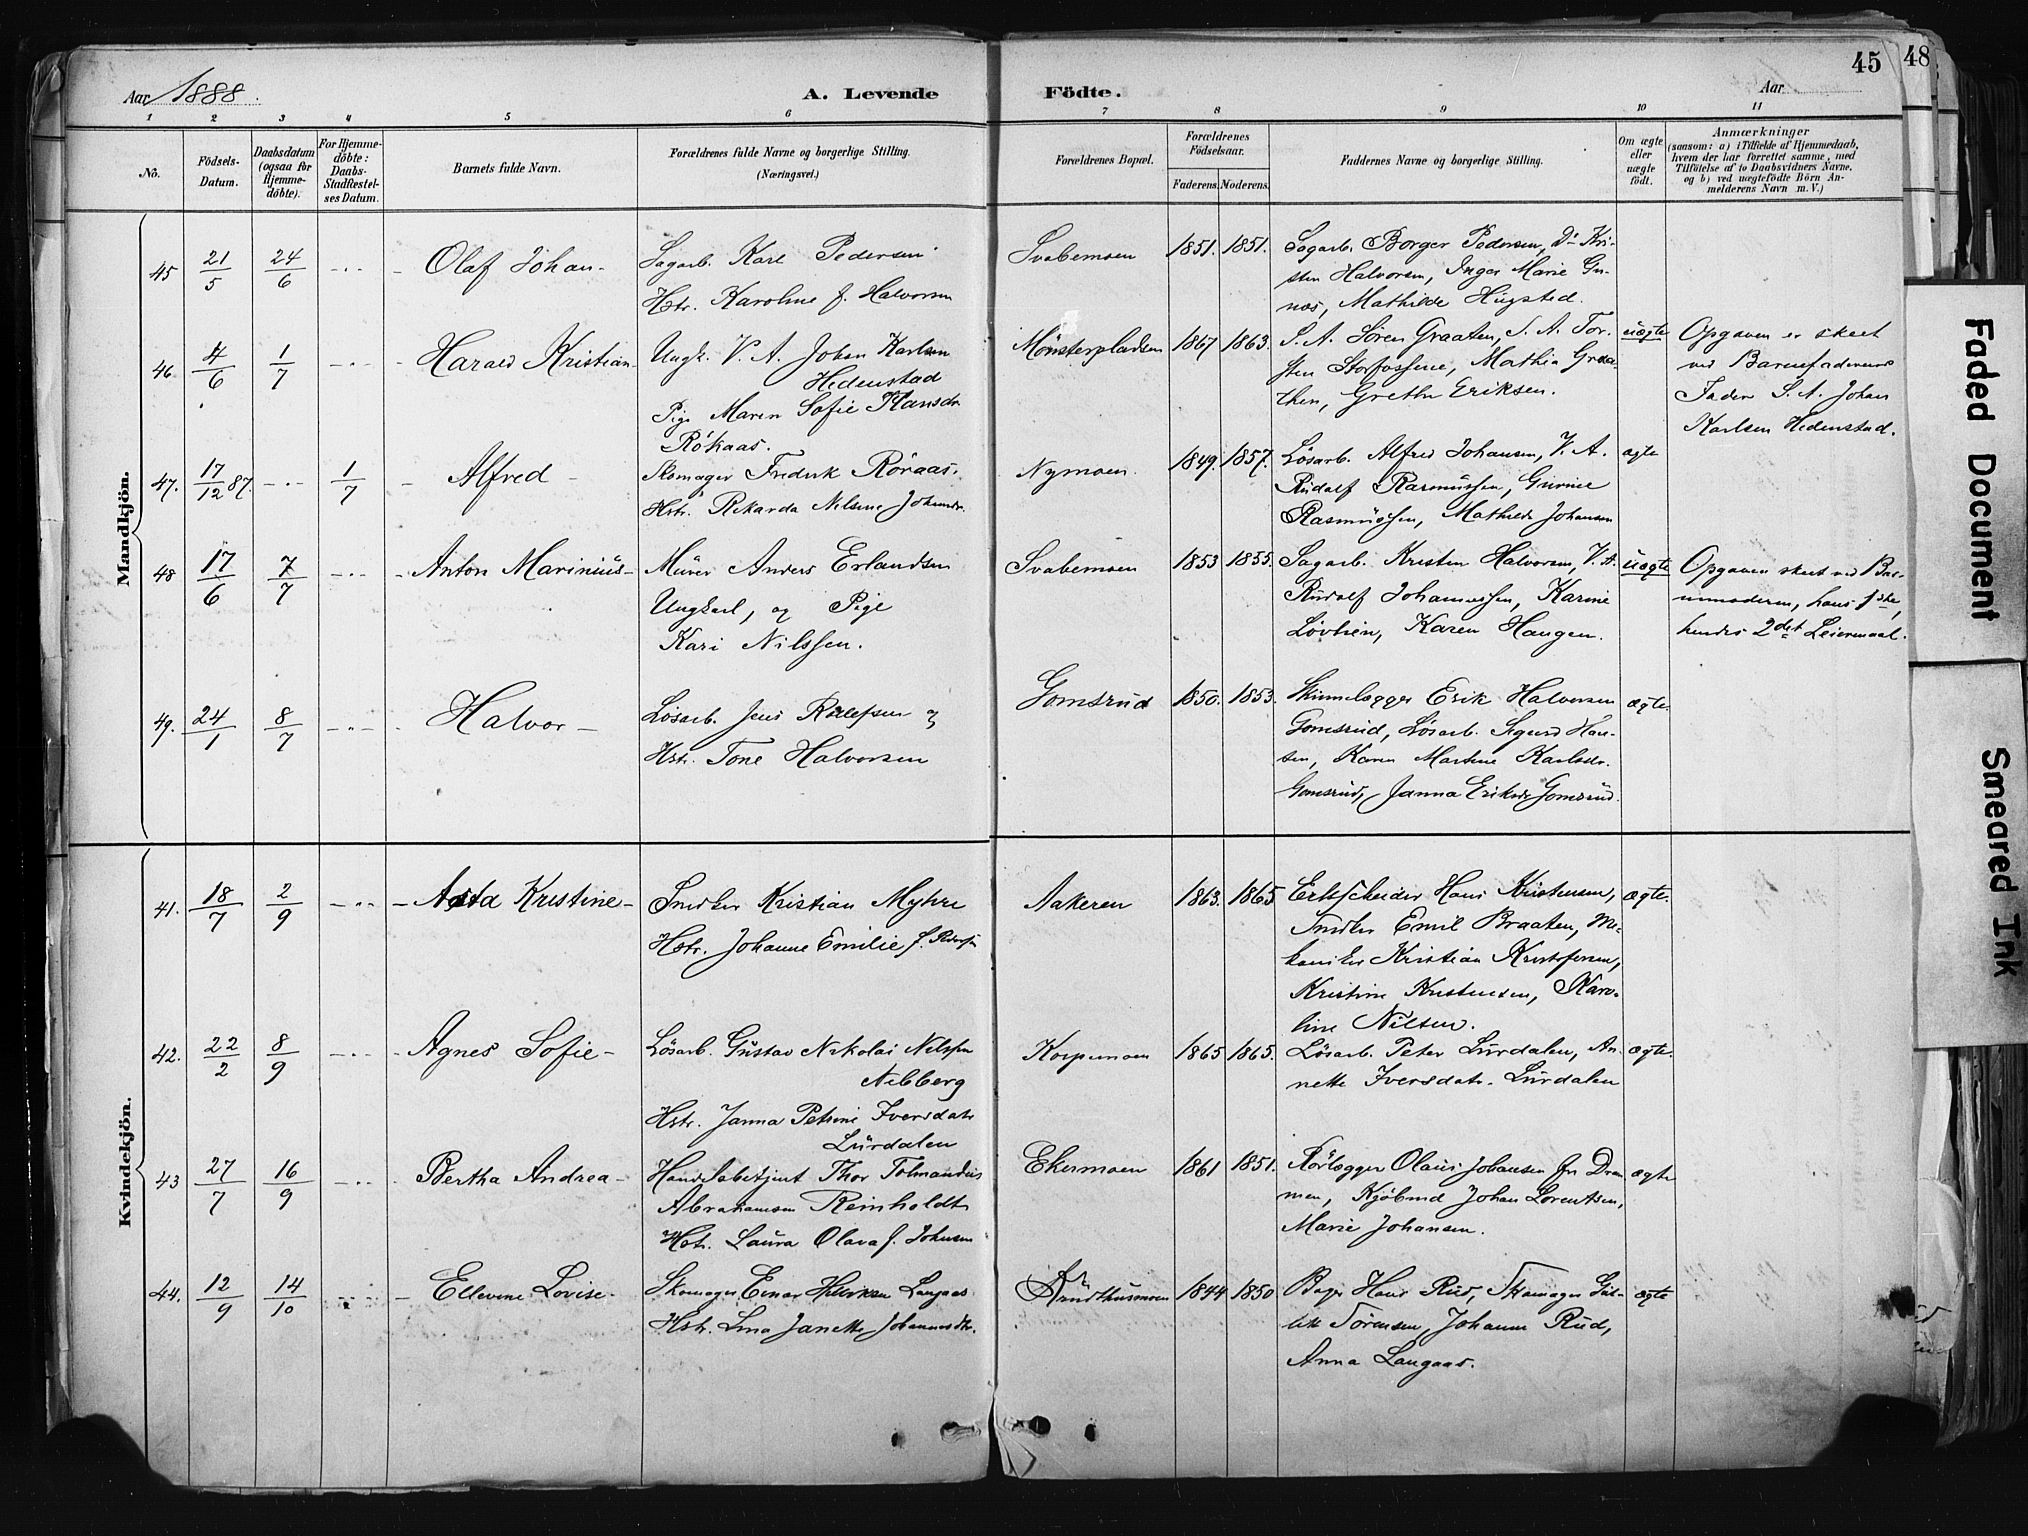 Aar 1888.
A. Levende
Födte.
Aar
45
48
1 2 3 4 5 6 7 8 9 10 11
No.
Födsels-
Datum.
Daabsdatum
(ogsaa for
Hjemme-
döbte).
For Hjemme-
döbte:
Daabs-
Stadfæstel-
ses Datum.
Barnets fulde Navn.
Forældrenes fulde Navne og borgerlige Stilling.
(Næringsvei.)
Forældrenes Bopæl.
Forældrenes
Födselsaar.
Faderens. Moderens.
Faddernes Navne og borgerlige Stilling.
Om ægte
eller
uægte
födt.
Anmærkninger
(saasom: a) i Tilfælde af Hjemmedaab,
hvem der har forrettet samme, med
Tilföielse af to Daabsvidners Navne,
og b) ved uægtefödte Börn An-
melderens Navn m. V.)
Mandkjön.
45 21/5 24/6 Olaf Johan
Sagarb. Karl Pedersen
Hstr. Karoline f. Halvorsen
Svabemoen 1851. 1851.
Sagarb. Borger Pedersen, Do Kri-
sten Halvorsen, Inger Marie Gu-
nes, Mathilde Hugsted.
46. 4/6 1/7 Harald Kristian
Ungk. V. A. Johan Karlsen
Hedenstad
Pige Maren Sofie Hansdr
Rökaas.
Mönsterpladsen 1867 1863. uægte
S. A. Sören Graaten, S. A. Tor-
sten Storfossene, Mathea Graa-
then, Grethe Eriksen.
Opgaven er skeet
ved Barnefaderens
Fader S. A. Johan
Karlsen Hedenstad.
47. 17/12 87. 1/7 Alfred
Skomager Fredrik Röraas.
Hstr. Rikarda Nilsine Johansdr.
Nymoen. 1849. 1857. ægte
Lösarb. Alfred Johansen, V. A.
Rudolf Rasmussen, Gurine
Rasmussen, Mathilde Johansen
48 17/6 7/7 Anton Marinius
Murer Anders Erlandsen
Ungkarl, og Pige
Kari Nilssen.
Svabemoen 1853 1855. uægte
Sagarb. Kristen Halvorsen, V. A.
Rudolf Johannessen, Karine
Lövlien, Karen Haugen.
Opgaven skeet ved Bar-
nemoderen, hans 1ste,
hendes 2det Leiermaal.
49. 24/1 8/7 Halvor
Lösarb. Jens Rolefsen og
Hstr. Tone Halvorsen
Gomsrud 1850. 1853. ægte.
Skinnelægger Erik Halvorsen
Gomsrud, Lösarb. Sigurd Han-
sen, Karen Martine Karlsdr.
Gomsrud, Janna Eriksdr Gomsrud.
Kvindekjön.
41. 18/7 2/9 Asta Kristine
Snedker Kristian Myhre
Hstr. Johanne Emilie f. Pedersen
Aakeren 1863. 1865 ægte.
Ertsscheider Hans Kristensen,
Snedker Emil Braaten, Me-
kaniker Kristian Kristofersen,
Kristine Kristensen, Karo-
line Nilsen.
42. 22/2 8/9 Agnes Sofie
Lösarb. Gustav Nikolai Nilssen
Nebberg
Hstr. Janna Petrine Iversdatr
Lurdalen
Korpemoen 1865 1865. ægte.
Lösarb. Peter Lurdalen, An-
nette Iversdatr. Lurdalen
43 27/7 16/9 Bertha Andrea
Handelsbetjent Thor Tolmandius
Abrahamsen Reinholdt
Hstr. Laura Olava f. Johnsen
Ekermoen 1861 1851. ægte
Rörlægger Olaus Johansen fra Dram-
men, Kjöbmd Johan Lorentsen,
Marie Johansen.
44. 12/9 14/10 Ellevine Lovise
Skomager Einar Henriksen Langaas
Hstr. Lina Janette Johannesdtr.
Knudthusmoen 1844 1850 ægte
Bager Hans Rud, Skomager Gul-
lek Törensen, Johanne Rud,
Anna Langaas.
Faded Document
Smeared Ink